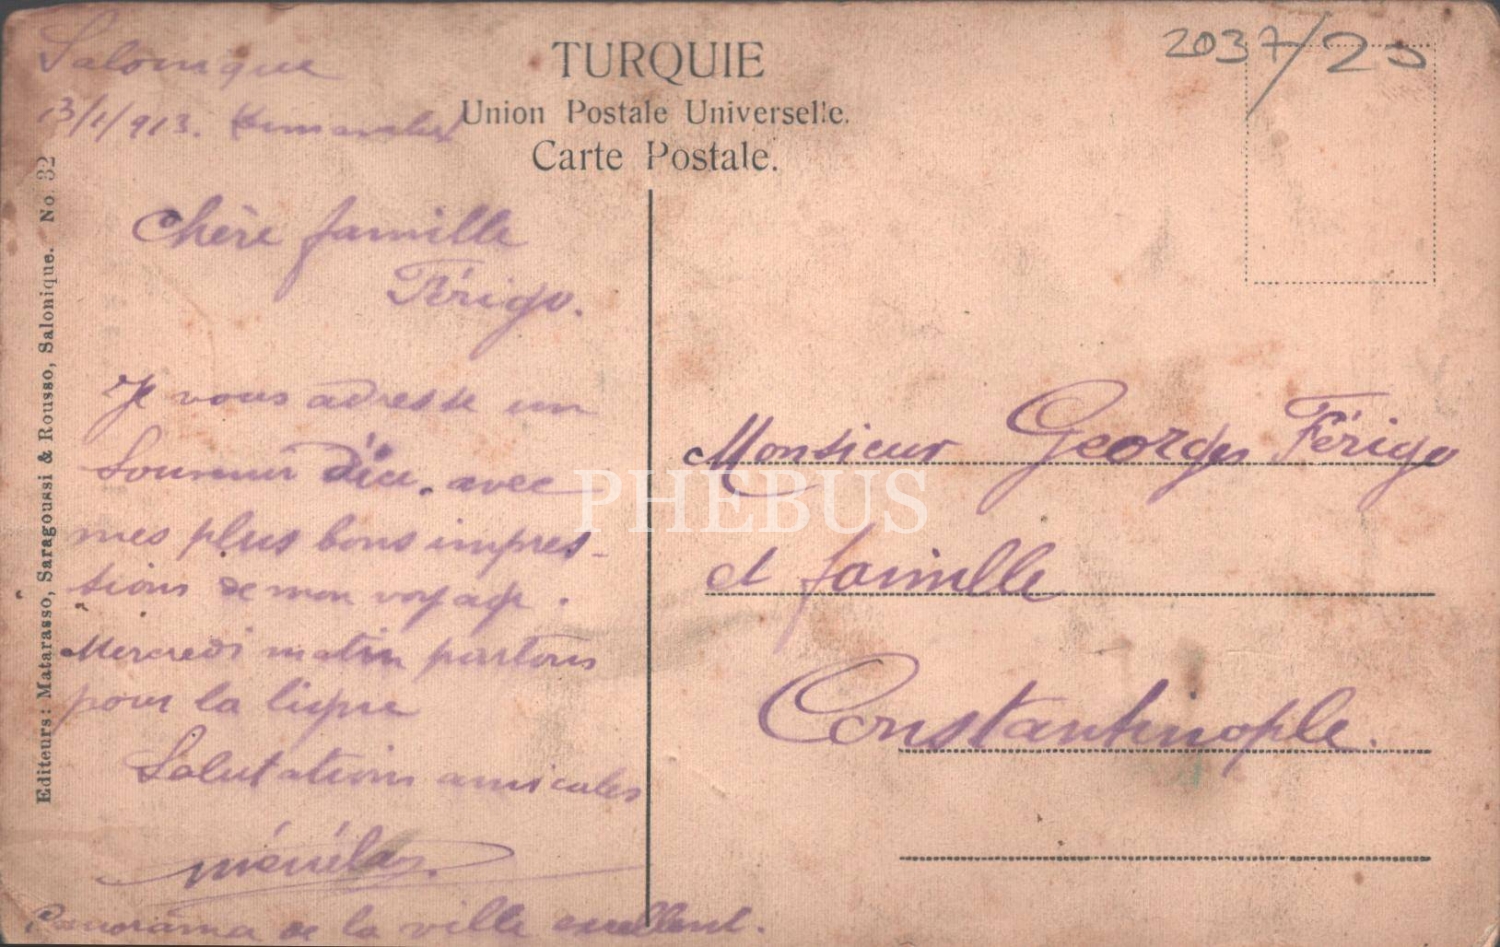 TURQUIE
Union Postale Universelle.
Carte Postale.
2037/25
Salonique
13/1/913.
Chère famille
Férigo.
Je vous adresse un
Souvenir d'ici. avec
mes plus bons impres-
sions de mon voyage.
Mercredi matin partons
pour la ligne
Salutations amicales
Ménélas.
Panorama de la ville excellent.
Monsieur Georges Férigo
et famille
Constantinople.
Editeurs: Matarasso, Saragoussi & Rousso, Salonique. No. 32
PHEBUS